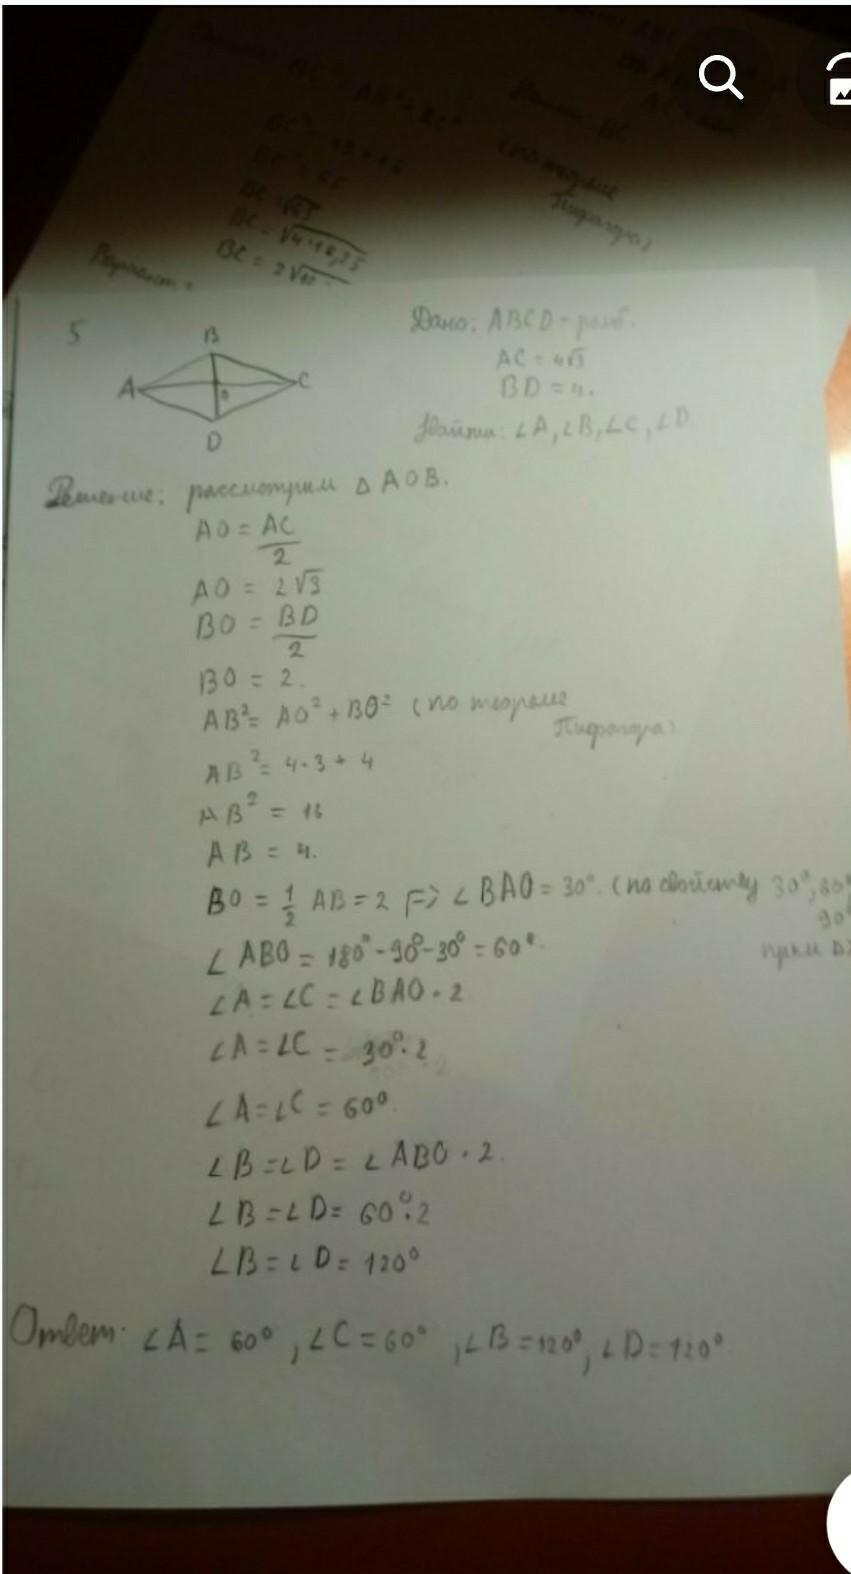 BC² = AB² + AC²
BC² = 65
BC = √65
BC = √4·16,25
(по теореме
Пифагора)
Вариант
5
B
A
C
O
D
Дано: ABCD - ромб.
AC = 4√3
BD = 4.
Найти: ∠A, ∠B, ∠C, ∠D.
Решение: рассмотрим △ AOB.
AO = AC/2
AO = 2√3
BO = BD/2
BO = 2.
AB² = AO² + BO² (по теореме
Пифагора)
AB² = 4·3 + 4
AB² = 16
AB = 4.
BO = 1/2 AB = 2 => ∠BAO = 30°. (по свойству 30°, 60°
90°
прям △)
∠ABO = 180° - 90° - 30° = 60°.
∠A = ∠C = ∠BAO · 2
∠A = ∠C = 30° · 2
∠A = ∠C = 60°.
∠B = ∠D = ∠ABO · 2.
∠B = ∠D = 60° · 2
∠B = ∠D = 120°
Ответ: ∠A = 60°, ∠C = 60°, ∠B = 120°, ∠D = 120°